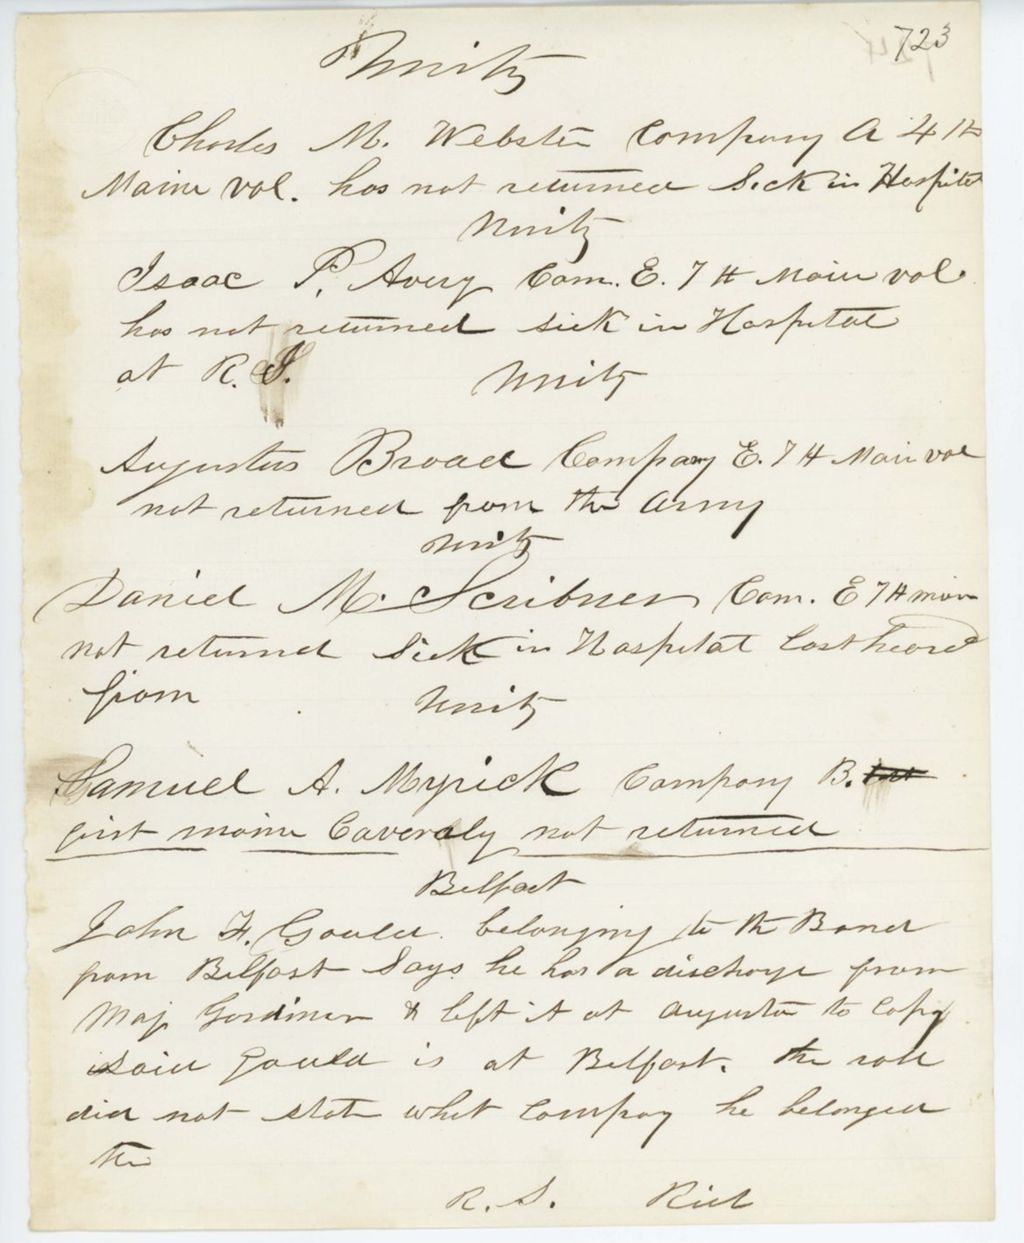 723
Unity
Charles M. Webster Company A 4th
Maine vol. has not returned Sick in Hospital
Unity
Isaac P. Avery Com. E. 7th Maine vol.
has not returned sick in Hospital
at R. I.
Unity
Augustus Broad Company E. 7th Main vol
not returned from the Army
Unity
Daniel M. Scribner Com. E 7th main
not returned Sick in Hospital last heard
from
Unity
Samuel A. Myrick Company B.
first maine Caveraly not returned
Belfast
John F. Gould belonging to the Band
from Belfast Says he has a discharge from
Maj Gardiner & left it at Augusta to Copy
said Gould is at Belfast. the roll
did not state what Company he belonged
to
R. S. Rich